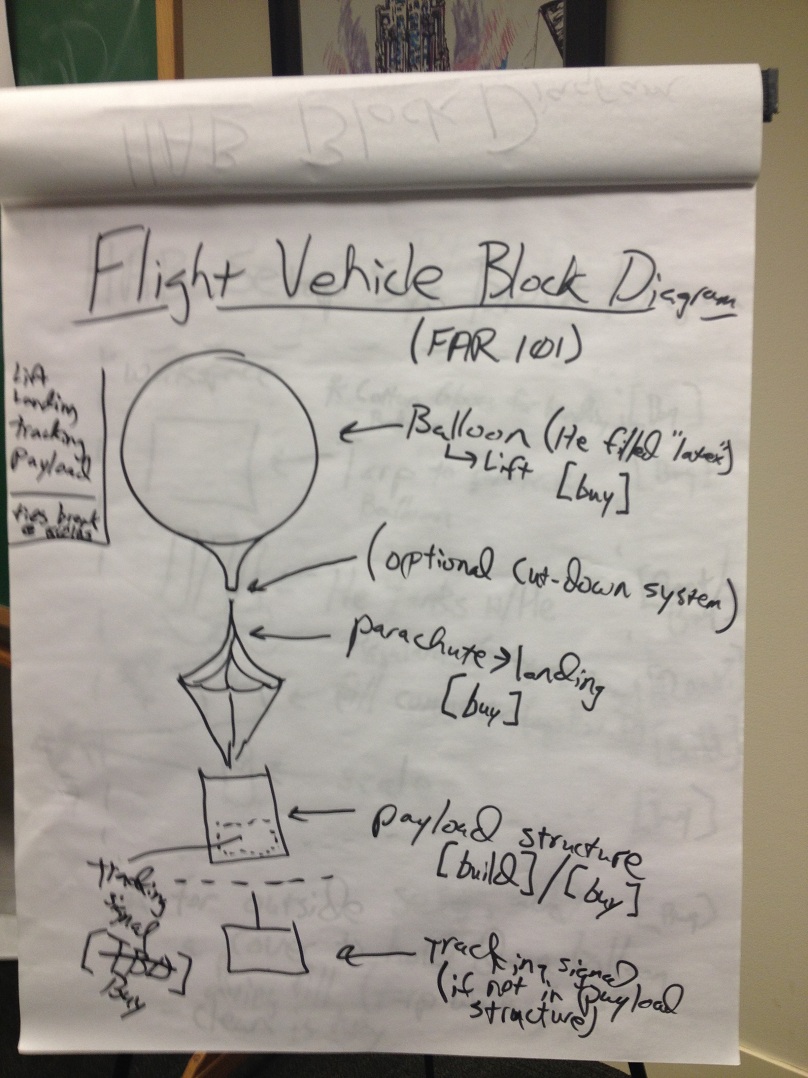 HAB Block Diagram
Flight Vehicle Block Diagram
(FAR 101)
Lift
Landing
tracking
payload
Balloon (He filled "latex")
↳ Lift
[buy]
(optional cut-down system)
parachute → landing
[buy]
payload structure
[build]/[buy]
tracking
signal
[TBD]
Buy
tracking signal
(if not in payload
structure)